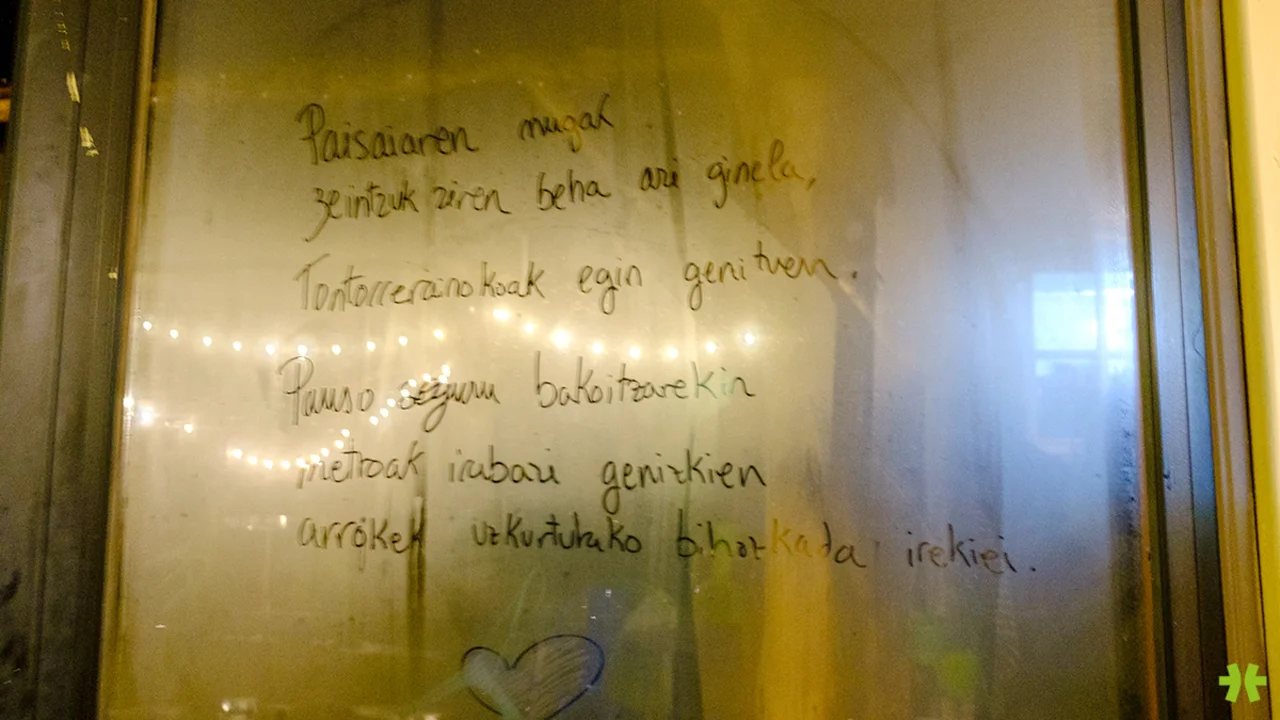 Paisaiaren mugak
zeintzuk ziren beha ari ginela,
Tontorrerainokoak egin genituen.
Pauso seguru bakoitzarekin
metroak irabazi genizkien
arrokek uzkurtutako bihozkada irekiei.